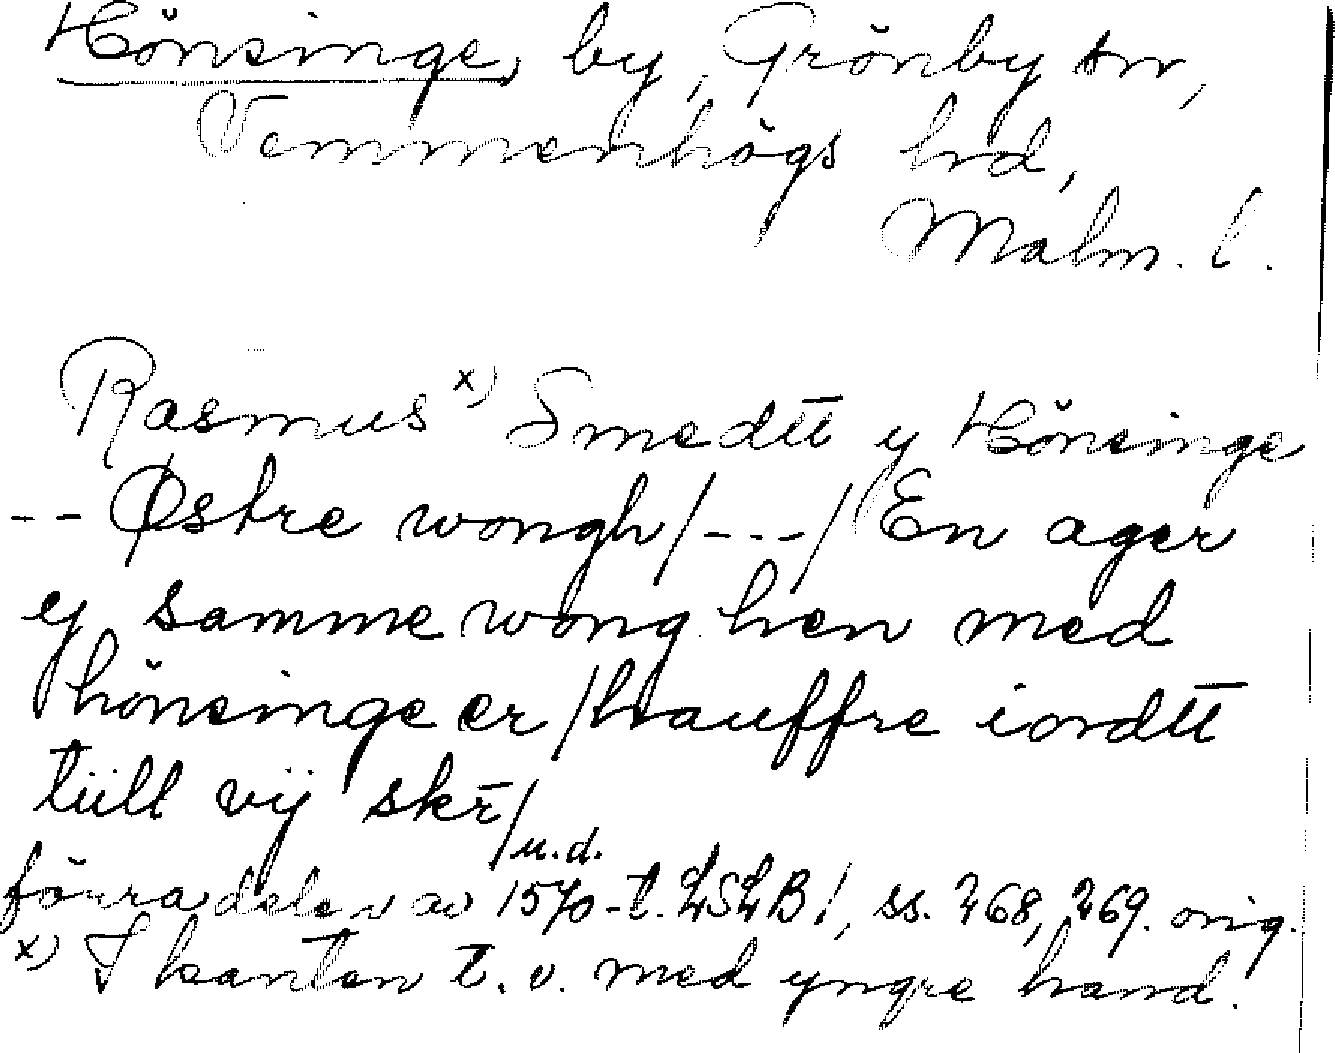 Hönsinge, by, Grönby sn,
Vemmenhögs hd,
Malm. l.
Rasmus x) Smedtt y Hönsinge
-- Østre wongh/---/En ager
ey samme wong hen med
hönsinge er/hauffre iordtt
tiill vij skr/
u.d.
förra delen av 1570-t. LSLB!, ss. 268, 269. orig.
x) I kanten t. v. med yngre hand.